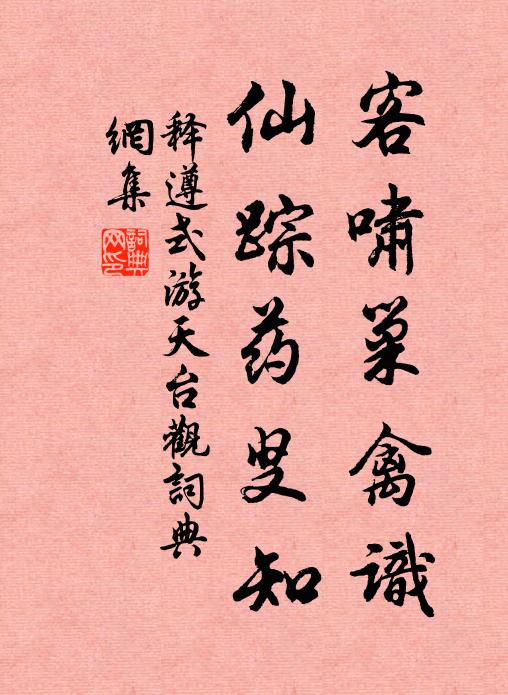 客啸巢禽識
仙踪药叟知
释遵式游天台觀詞典
網集
詞典
网印